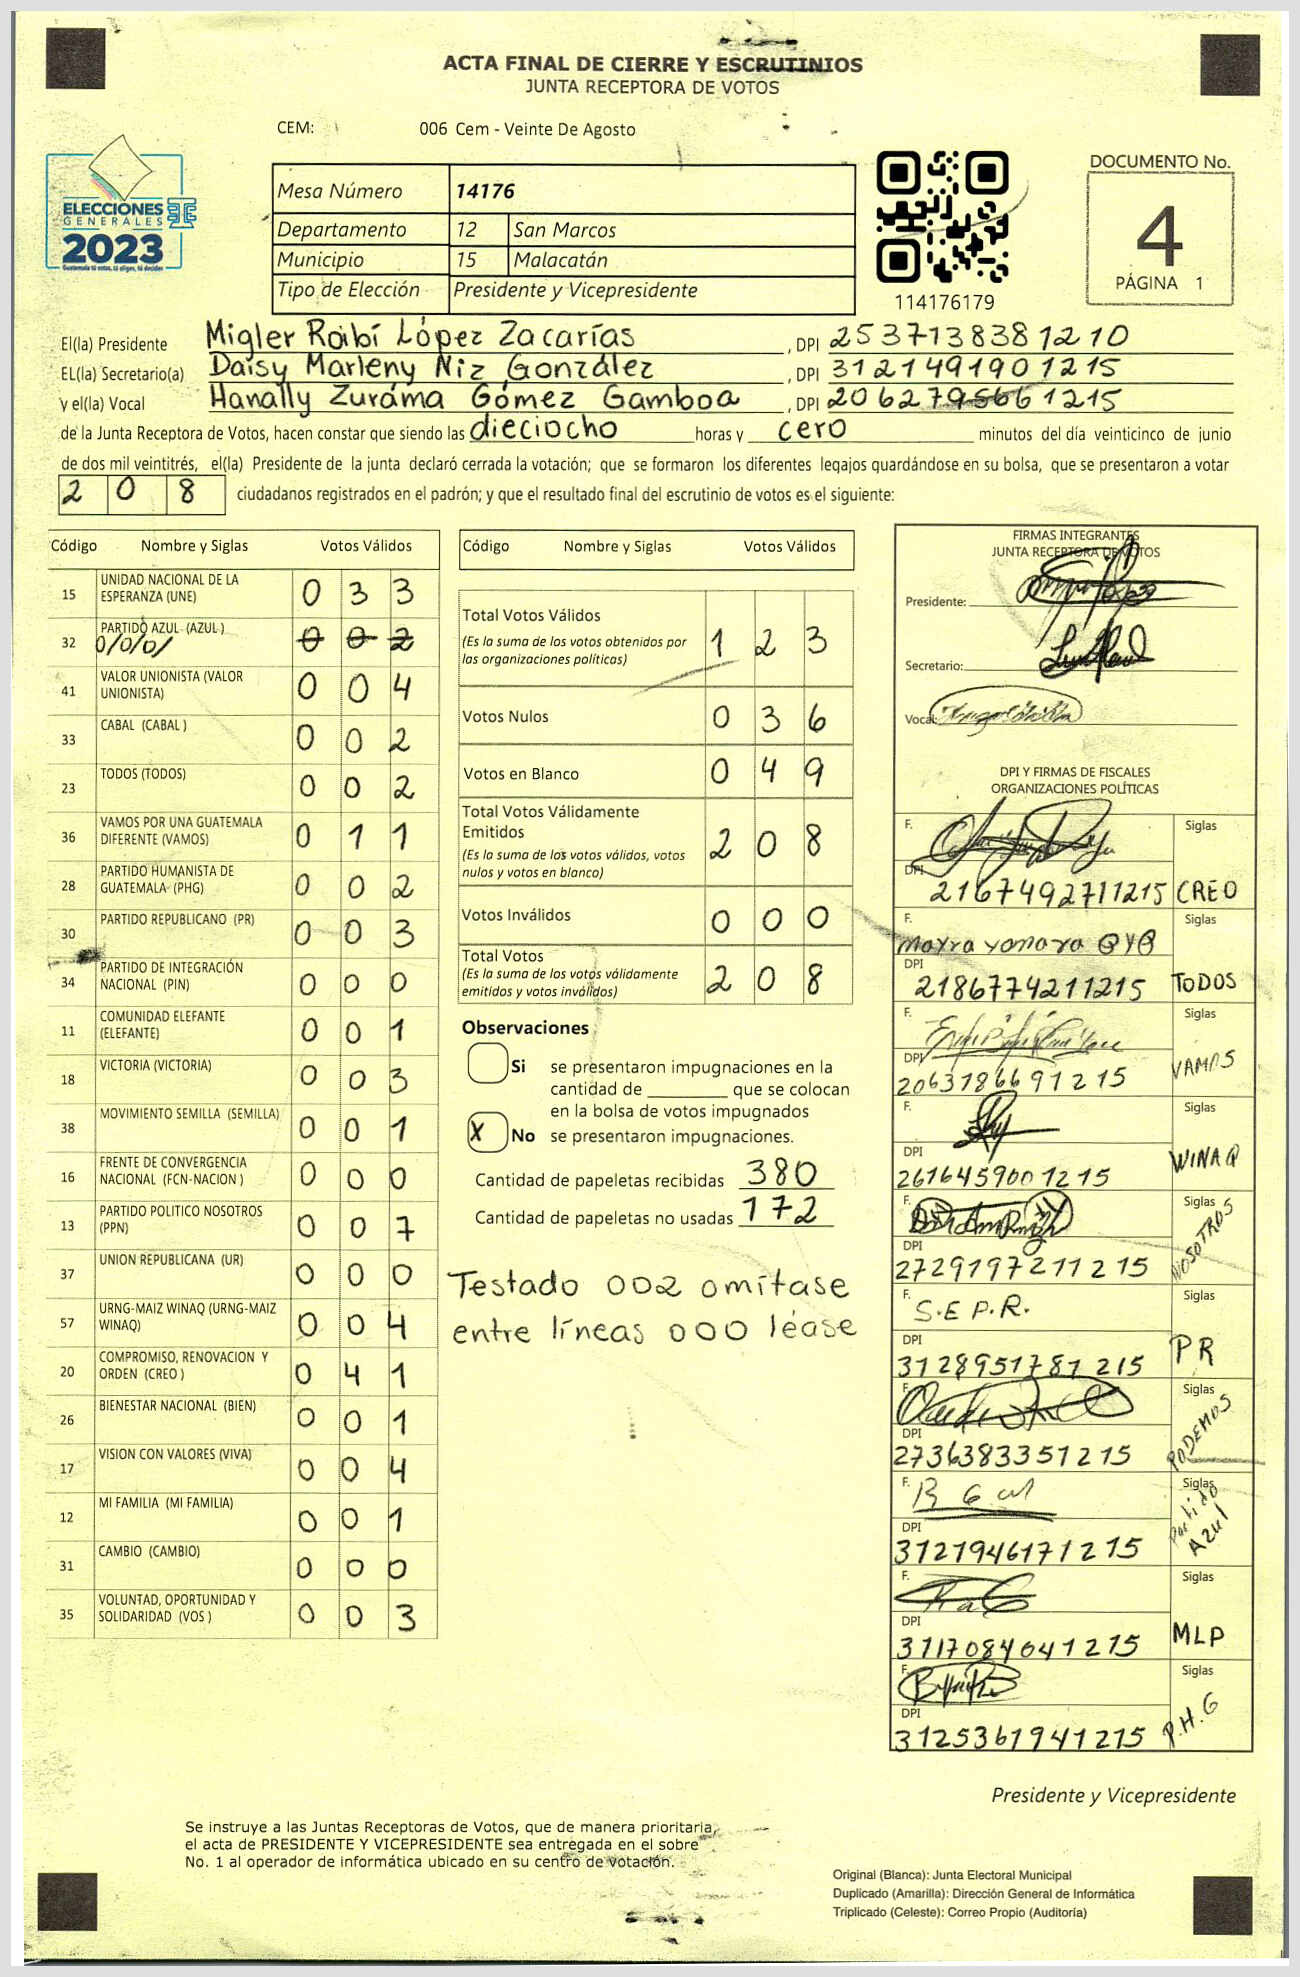 ACTA FINAL DE CIERRE Y ESCRUTINIOS
JUNTA RECEPTORA DE VOTOS
CEM: 006 Cem - Veinte De Agosto
ELECCIONES
GENERALES
2023
Guatemala tú votas, tú eliges, tú decides
Mesa Número 14176
Departamento 12 San Marcos
Municipio 15 Malacatán
Tipo de Elección Presidente y Vicepresidente
114176179
DOCUMENTO No.
4
PÁGINA 1
El(la) Presidente Migler Roibí López Zacarías, DPI 2537138381210
EL(la) Secretario(a) Daisy Marleny Niz González, DPI 3121491901215
y el(la) Vocal Hanally Zurama Gómez Gamboa, DPI 2062795661215
de la Junta Receptora de Votos, hacen constar que siendo las dieciocho horas y cero minutos del día veinticinco de junio
de dos mil veintitrés, el(la) Presidente de la junta declaró cerrada la votación; que se formaron los diferentes legajos guardándose en su bolsa, que se presentaron a votar
208 ciudadanos registrados en el padrón; y que el resultado final del escrutinio de votos es el siguiente:
Código Nombre y Siglas Votos Válidos
15 UNIDAD NACIONAL DE LA ESPERANZA (UNE) 0 3 3
32 PARTIDO AZUL (AZUL) 0/0/0/ 0 0 2
41 VALOR UNIONISTA (VALOR UNIONISTA) 0 0 4
33 CABAL (CABAL ) 0 0 2
23 TODOS (TODOS) 0 0 2
36 VAMOS POR UNA GUATEMALA DIFERENTE (VAMOS) 0 1 1
28 PARTIDO HUMANISTA DE GUATEMALA (PHG) 0 0 2
30 PARTIDO REPUBLICANO (PR) 0 0 3
34 PARTIDO DE INTEGRACIÓN NACIONAL (PIN) 0 0 0
11 COMUNIDAD ELEFANTE (ELEFANTE) 0 0 1
18 VICTORIA (VICTORIA) 0 0 3
38 MOVIMIENTO SEMILLA (SEMILLA) 0 0 1
16 FRENTE DE CONVERGENCIA NACIONAL (FCN-NACION ) 0 0 0
13 PARTIDO POLITICO NOSOTROS (PPN) 0 0 7
37 UNION REPUBLICANA (UR) 0 0 0
57 URNG-MAIZ WINAQ (URNG-MAIZ WINAQ) 0 0 4
20 COMPROMISO, RENOVACION Y ORDEN (CREO ) 0 4 1
26 BIENESTAR NACIONAL (BIEN) 0 0 1
17 VISION CON VALORES (VIVA) 0 0 4
12 MI FAMILIA (MI FAMILIA) 0 0 1
31 CAMBIO (CAMBIO) 0 0 0
35 VOLUNTAD, OPORTUNIDAD Y SOLIDARIDAD (VOS ) 0 0 3
Código Nombre y Siglas Votos Válidos
Total Votos Válidos 1 2 3
(Es la suma de los votos obtenidos por
las organizaciones políticas)
Votos Nulos 0 3 6
Votos en Blanco 0 4 9
Total Votos Válidamente
Emitidos 2 0 8
(Es la suma de los votos válidos, votos
nulos y votos en blanco)
Votos Inválidos 0 0 0
Total Votos 2 0 8
(Es la suma de los votos válidamente
emitidos y votos inválidos)
Observaciones
Si se presentaron impugnaciones en la
cantidad de ________ que se colocan
en la bolsa de votos impugnados
X No se presentaron impugnaciones.
Cantidad de papeletas recibidas 380
Cantidad de papeletas no usadas 172
Testado 002 omítase
entre líneas 000 léase
FIRMAS INTEGRANTES
JUNTA RECEPTORA DE VOTOS
Presidente:
Secretario:
Vocal:
DPI Y FIRMAS DE FISCALES
ORGANIZACIONES POLÍTICAS
F. Siglas
DPI 2167492711215 CREO
F. Mayra Yomara Siglas
DPI 2186774211215 TODOS
F. Siglas
DPI 2063786691215 VAMOS
F. Siglas
DPI 2616459001215 WINAQ
F. Siglas
DPI 2729197211215 NOSOTROS
F. S.E P.R. Siglas
DPI 3128951781215 PR
F. Siglas
DPI 2736383351215 PODEMOS
F. Siglas
DPI 3121946171215 Partido Azul
F. Siglas
DPI 3117084041215 MLP
F. Siglas
DPI 3125361941215 P.H.G
Presidente y Vicepresidente
Se instruye a las Juntas Receptoras de Votos, que de manera prioritaria,
el acta de PRESIDENTE Y VICEPRESIDENTE sea entregada en el sobre
No. 1 al operador de informática ubicado en su centro de votación.
Original (Blanca): Junta Electoral Municipal
Duplicado (Amarilla): Dirección General de Informática
Triplicado (Celeste): Correo Propio (Auditoría)